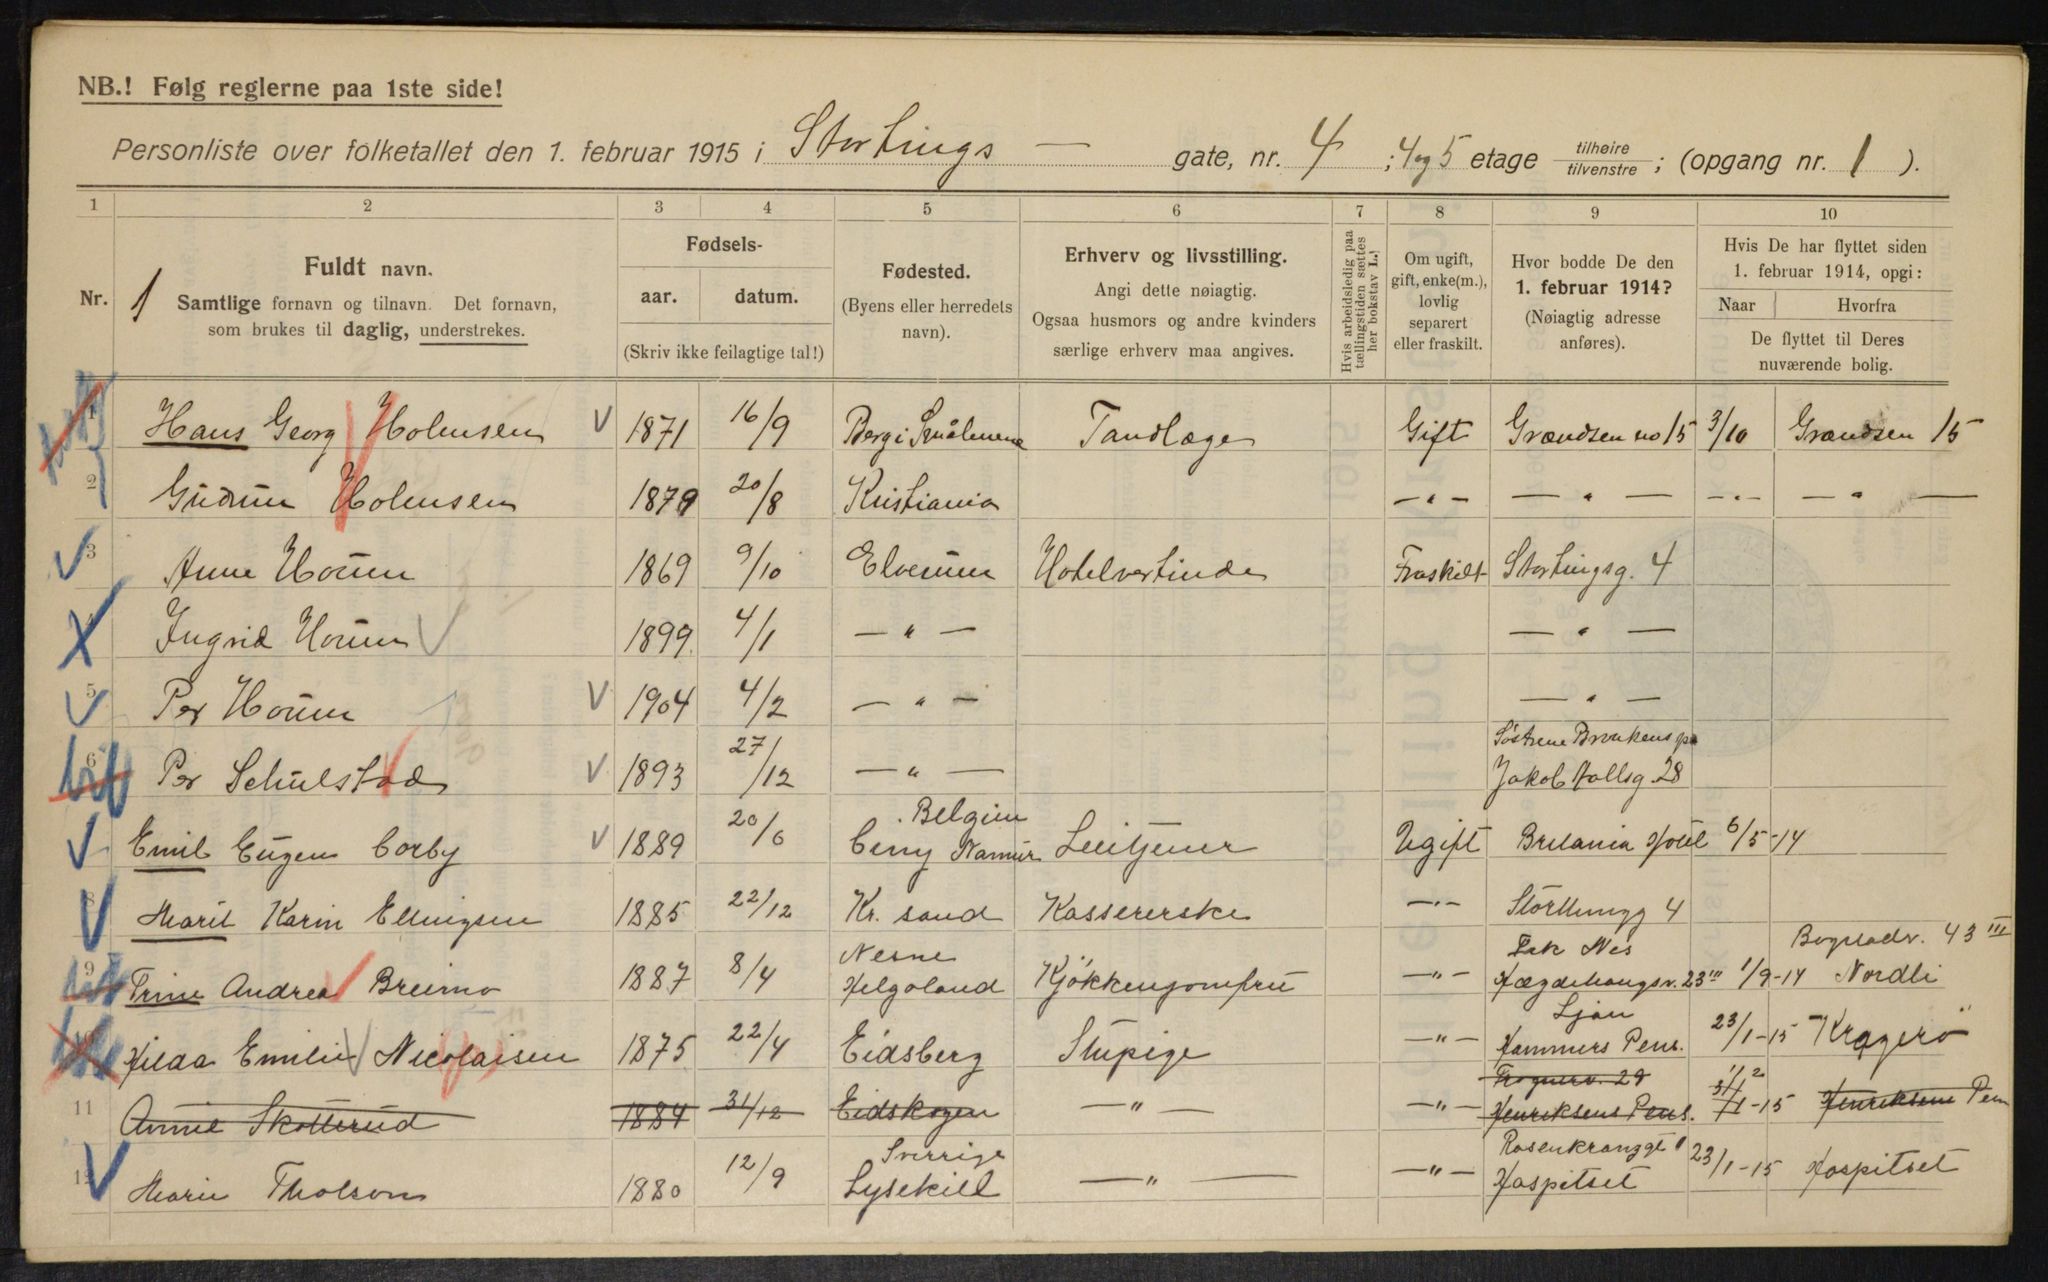 NB.! Følg reglerne paa 1ste side!
Personliste over folketallet den 1. februar 1915 i Stortings — gate, nr. 4 ; 4 og 5 etage tilhøire tilvenstre ; (opgang nr. 1 ).
1 2 3 4 5 6 7 8 9 10
Nr.
1
Fuldt navn.
Samtlige fornavn og tilnavn. Det fornavn,
som brukes til daglig, understrekes.
Fødsels-
aar. datum.
(Skriv ikke feilagtige tal!)
Fødested.
(Byens eller herredets
navn).
Erhverv og livsstilling.
Angi dette nøiagtig.
Ogsaa husmors og andre kvinders
særlige erhverv maa angives.
Hvis arbeidsledig paa
tællingstiden sættes
her bokstav L.!
Om ugift,
gift, enke(m.),
lovlig
separert
eller fraskilt.
Hvor bodde De den
1. februar 1914?
(Nøiagtig adresse
anføres).
Hvis De har flyttet siden
1. februar 1914, opgi:
Naar Hvorfra
De flyttet til Deres
nuværende bolig.
1 Hans Georg Holmsen 1871 16/9 Berg i Smålenene Tandlæge Gift Grændsen no 15 3/10 Grændsen 15
2 Gudrun Holmsen 1879 20/8 Kristiania — " — — " — — " — — " —
3 Anne Horum 1869 9/10 Elverum Hotelvertinde Fraskilt Stortingsg. 4
4 Ingrid Horum 1899 4/1 — " — — " —
5 Per Horum 1904 4/2 — " — — " —
6 Per Schulstad 1893 27/12 — " — Søstrene
Jakob Aallsg. 28
Emil Eugen Corby 1889 20/6 Belgien
Ciny Namur Ugift Britania Hotel 6/5-14
8 Marit Karin Ellingsen 1885 22/12 Kr. sand Kassererske — " — 4
9 Trine Andrea Breimo 1887 8/4 Nesne
Helgoland Kjøkkenjomfru — " — Hægdehaugsv. 23 III 1/9-14 Bogstadv. 43 III
Nordli
10 Hilda Emilie Nicolaisen 1875 22/4 Eidsberg Stupige — " — Ljan
Hammers Pens. 23/1-15 Kragerö
11 Annie Skotterud 1884 31/12 Eidskogen — " — — " — Frognerv. 29
Henriksens Pens. 1/2 -15 Henriksens Pen
12 Marie Tholson 1880 12/9 Sverrige
Lysekill — " — — " — Rosenkranzgt
Hospitset 23/1-15 Hospitset